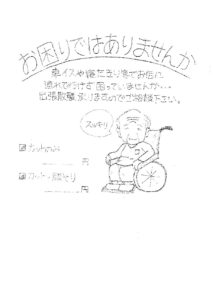 お困りではありませんか
車イスや寝たきり等でお店に
連れて行けず困っていませんか…
出張散髪、承りますのでご相談下さい。
スッキリ
☑カットのみ
円
☑カット・顔そり
円